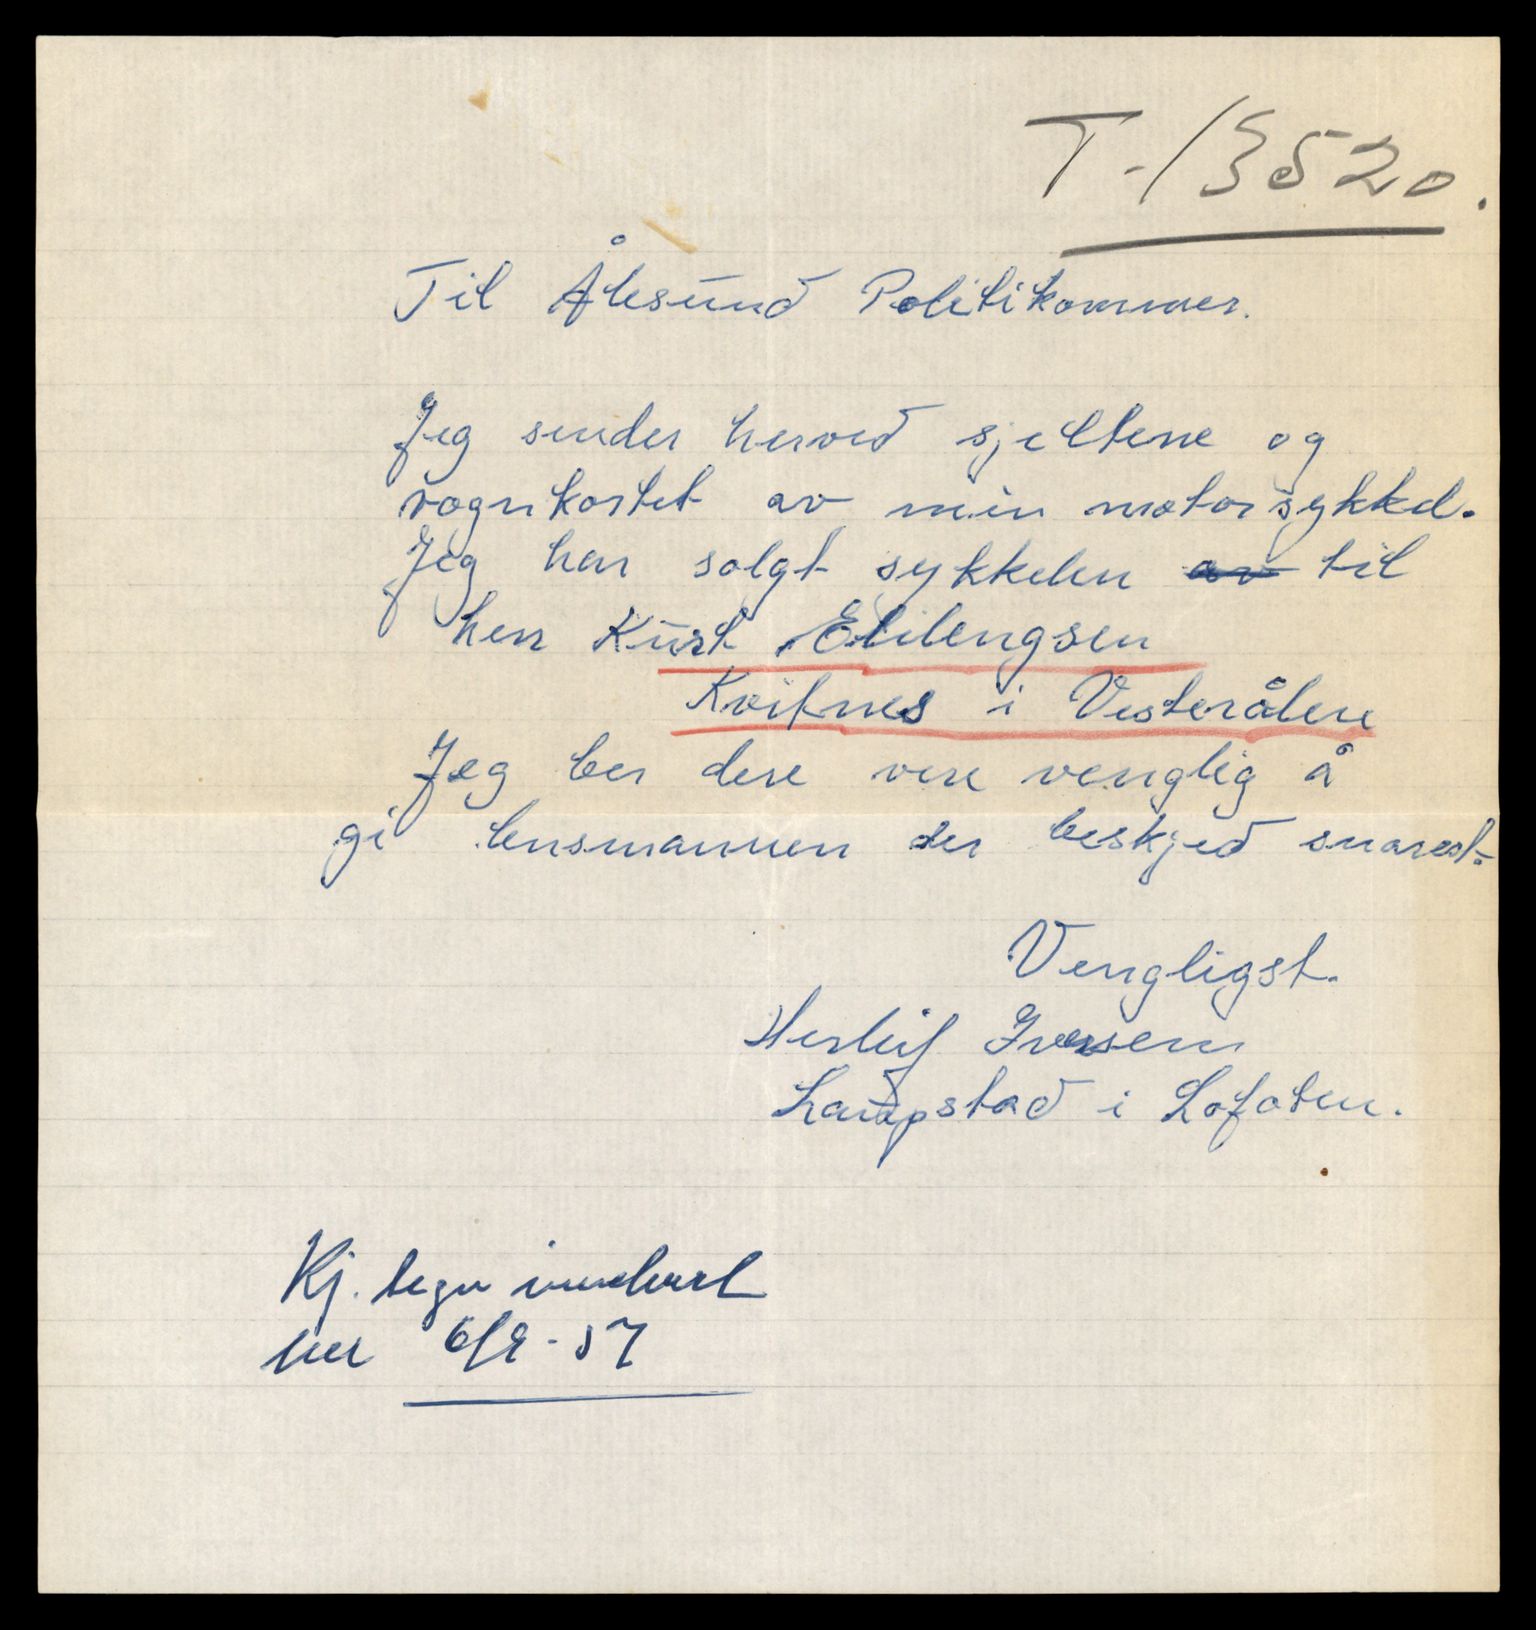 T-13520.
Til Ålesund Politikammer.
Jeg sender herved sjeltene og
vognkortet av min motorsykkel.
Jeg har solgt sykkelen av til
herr Kurt Ellilengsen
Kviknes i Vesterålen
Jeg ber dere vere venglig å
gi lensmannen der beskjed snarest.
Vengligst.
Herleif Iversen
i Lofoten.
Kj. tegn innlevert
her 6/9-57